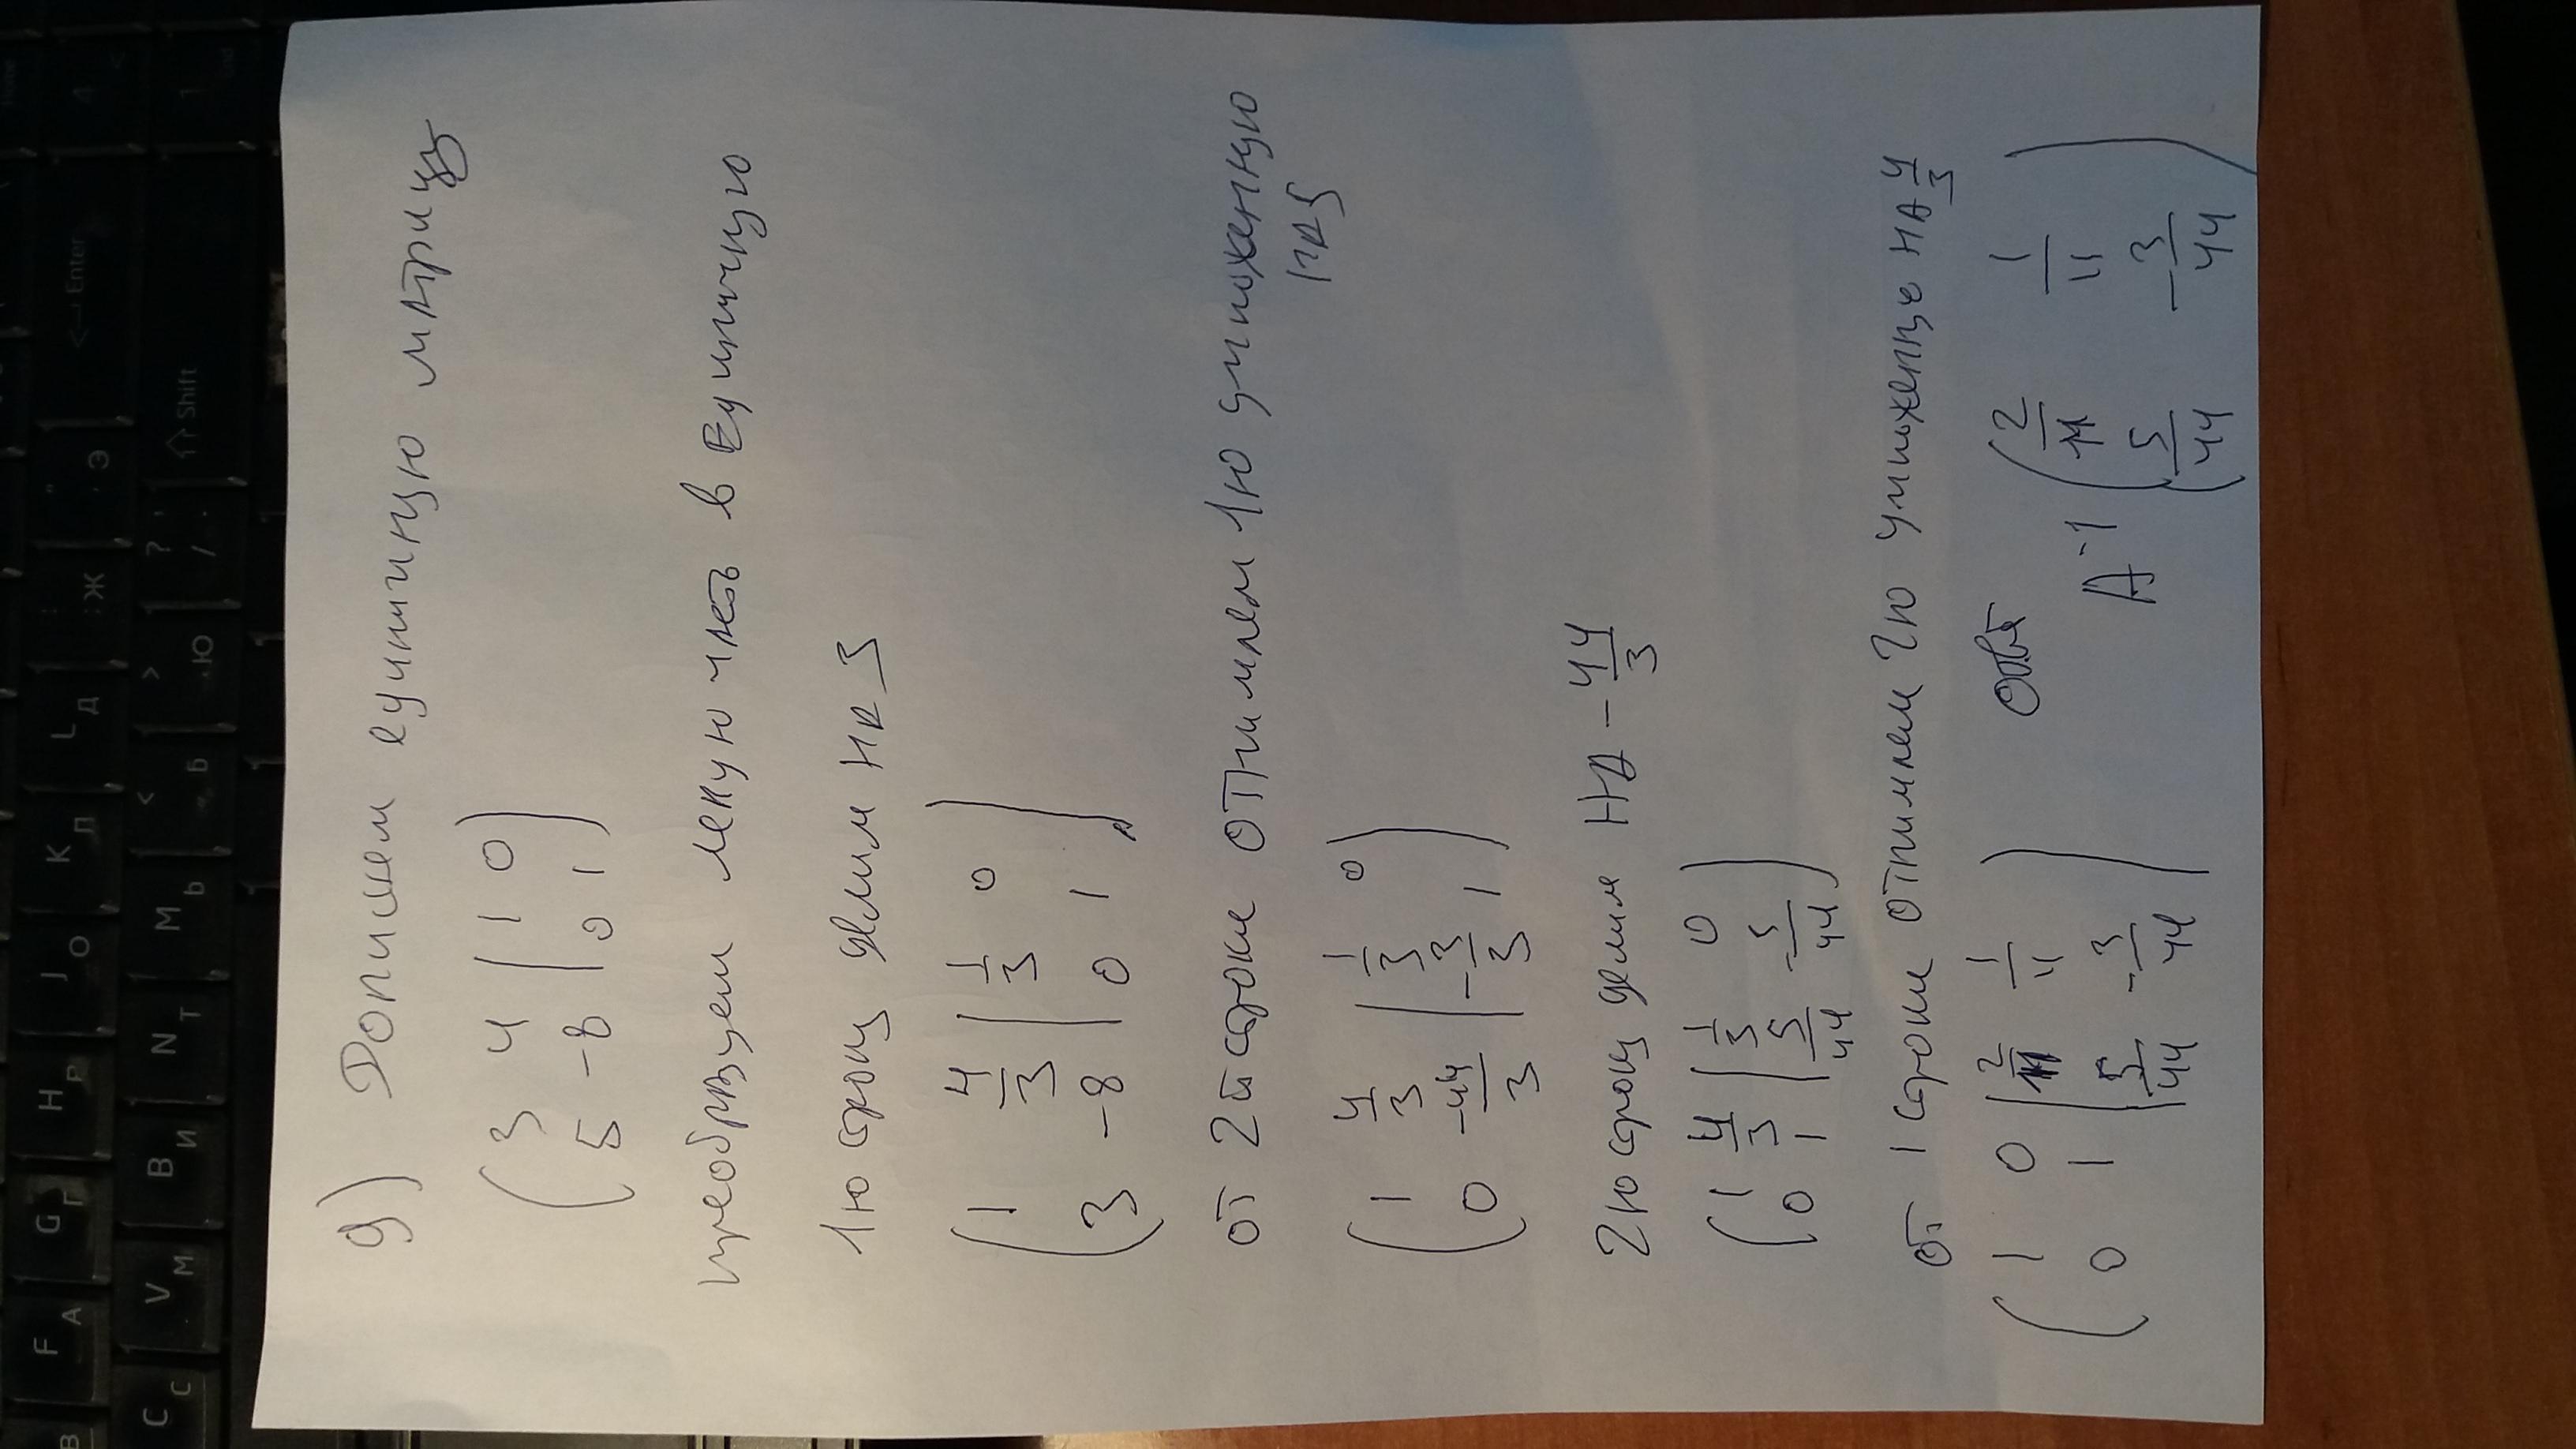 д) Допишем единичную матрицу
( 3 4 | 1 0 )
( 5 -8 | 0 1 )
преобразуем левую часть в Единичную
1ю строку делим на 3
( 1 4/3 | 1/3 0 )
( 3 -8 | 0 1 )
от 2й строки отнимаем 1ю умноженную
на 5
( 1 4/3 | 1/3 0 )
( 0 -44/3 | -3/3 1 )
2ю строку делим на -44/3
( 1 4/3 | 1/3 0 )
( 0 1 | 5/44 -5/44 )
от 1 строки отнимаем 2ю умноженную на 4/3
( 1 0 | 2/11 1/11 )
( 0 1 | 5/44 -3/44 )
Ответ
A⁻¹ ( 2/11 1/11 )
( 5/44 -3/44 )
Enter
Shift
F А G П H Р J О K Л L Д : Ж " Э
C С V М B И N Т M Ь < Б > Ю ? / .